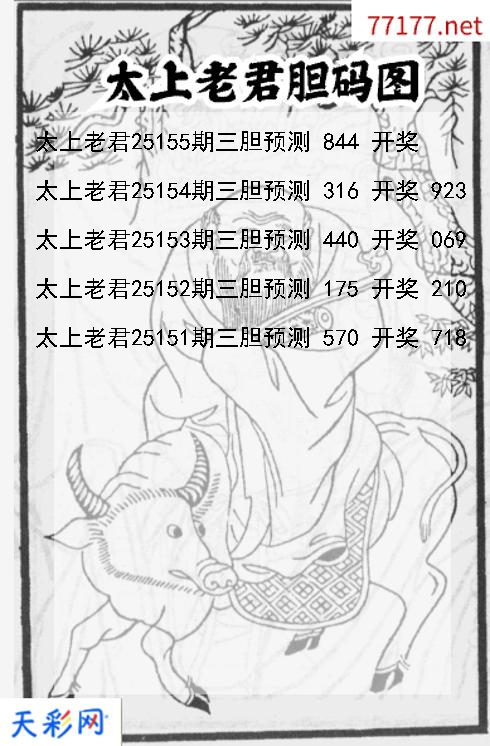 77177.net
太上老君胆码图
太上老君25155期三胆预测 844 开奖
太上老君25154期三胆预测 316 开奖 923
太上老君25153期三胆预测 440 开奖 069
太上老君25152期三胆预测 175 开奖 210
太上老君25151期三胆预测 570 开奖 718
天彩网